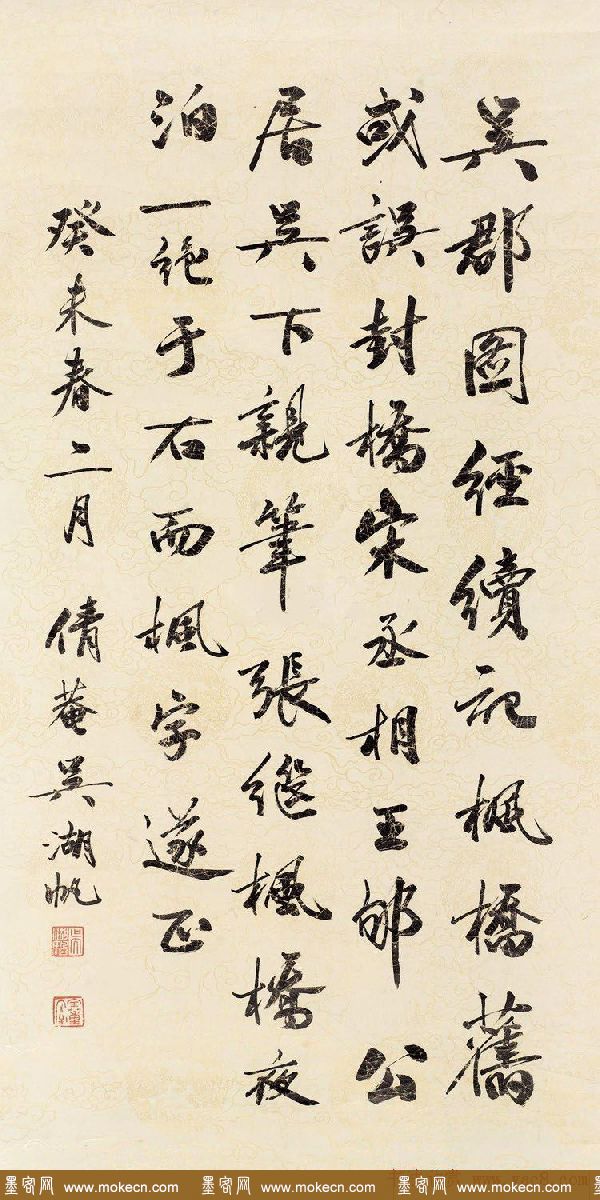 吳郡圖經續記楓橋舊
或誤封橋宋丞相王郇公
居吳下親筆張继楓橋夜
泊一絶于右而楓字遂正
癸未春二月 倩菴吳湖帆
墨客网 www.mokecn.com 墨客网 www.mokecn.com 墨客网 www.mokecn.com